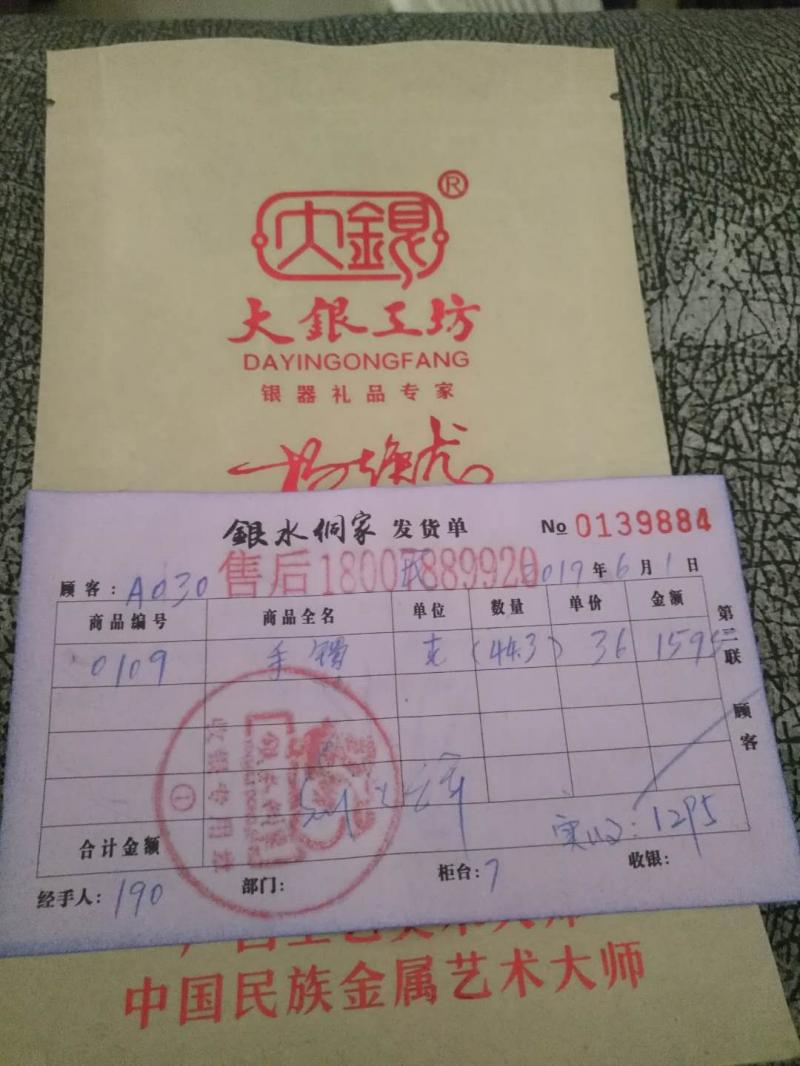 大銀
®
大銀工坊
DAYINGONGFANG
银器礼品专家
銀水侗家 发货单 No 0139884
售后18007889920
顾客: A030 2019年6月1日
商品编号 商品全名 单位 数量 单价 金额
0109 手镯 克 (44.3) 36 1595
第二联 顾客
合计金额 实收: 1295
经手人: 190 部门: 柜台: 7 收银:
收银专用章
①
中国民族金属艺术大师